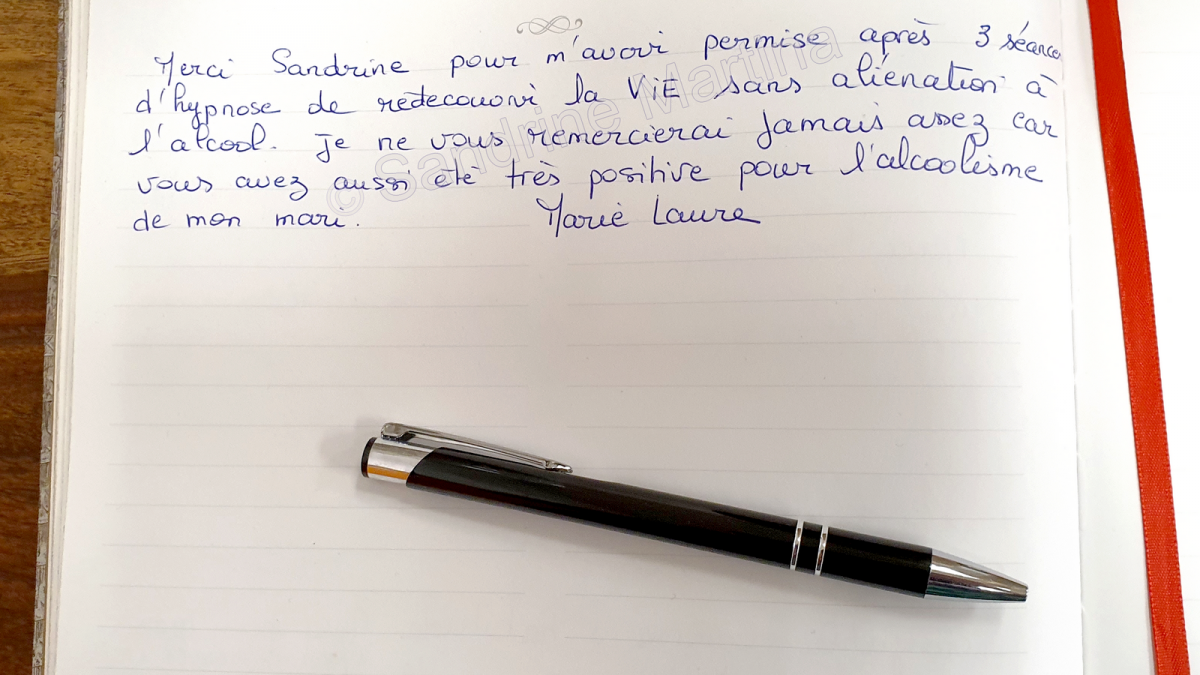 Merci Sandrine pour m'avoir permise après 3 séances
d'hypnose de redecouvrir la ViE sans aliénation à
l'alcool. Je ne vous remercierai Jamais assez car
vous avez aussi été très positive pour l'alcoolisme
de mon mari. Marie Laure
© Sandrine Martina